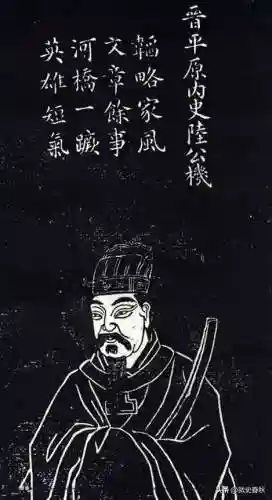 晋平原内史陸公機
韜略家風
文章餘事
河橋一蹶
英雄短氣
头条 @微史春秋